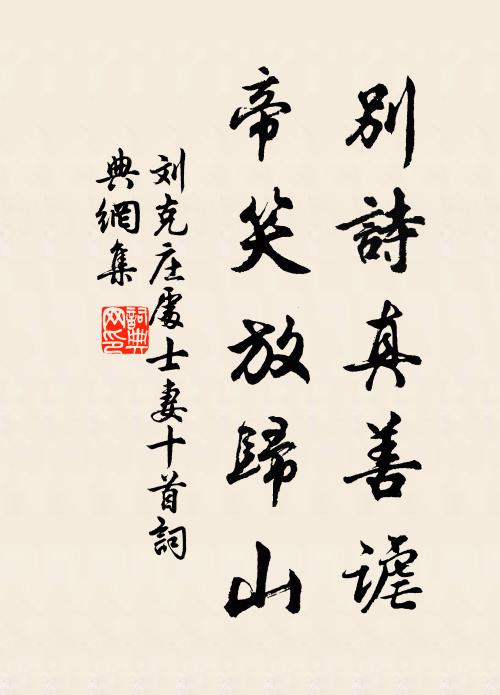 別詩真善謔
帝笑放歸山
刘克庄處士妻十首詞
典網集
詞典
网印